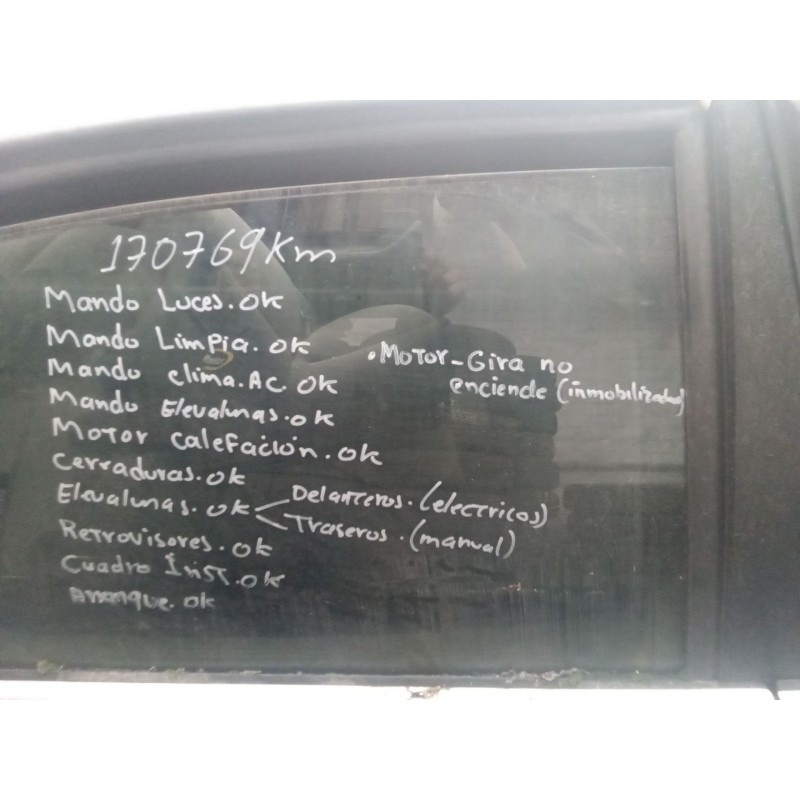 170769Km
Mando Luces. OK
Mando Limpia. OK
Mando clima. AC. OK
Mando Elevalunas. OK
Motor calefación. OK
Cerraduras. OK
Elevalunas. OK
Delanteros. (electricos)
Traseros. (manual)
Retrovisores. OK
Cuadro Inst. OK
Arranque. OK
• Motor - Gira no
enciende (inmobilizador)